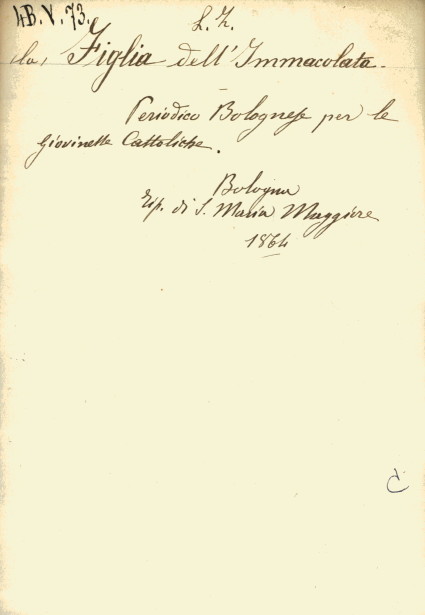 4B.V.73.
L. Z.
(la) Figlia dell'Immacolata.
Periodico Bolognese per le
Giovinette Cattoliche.
Bologna
Tip. di S. Maria Maggiore
1864
C